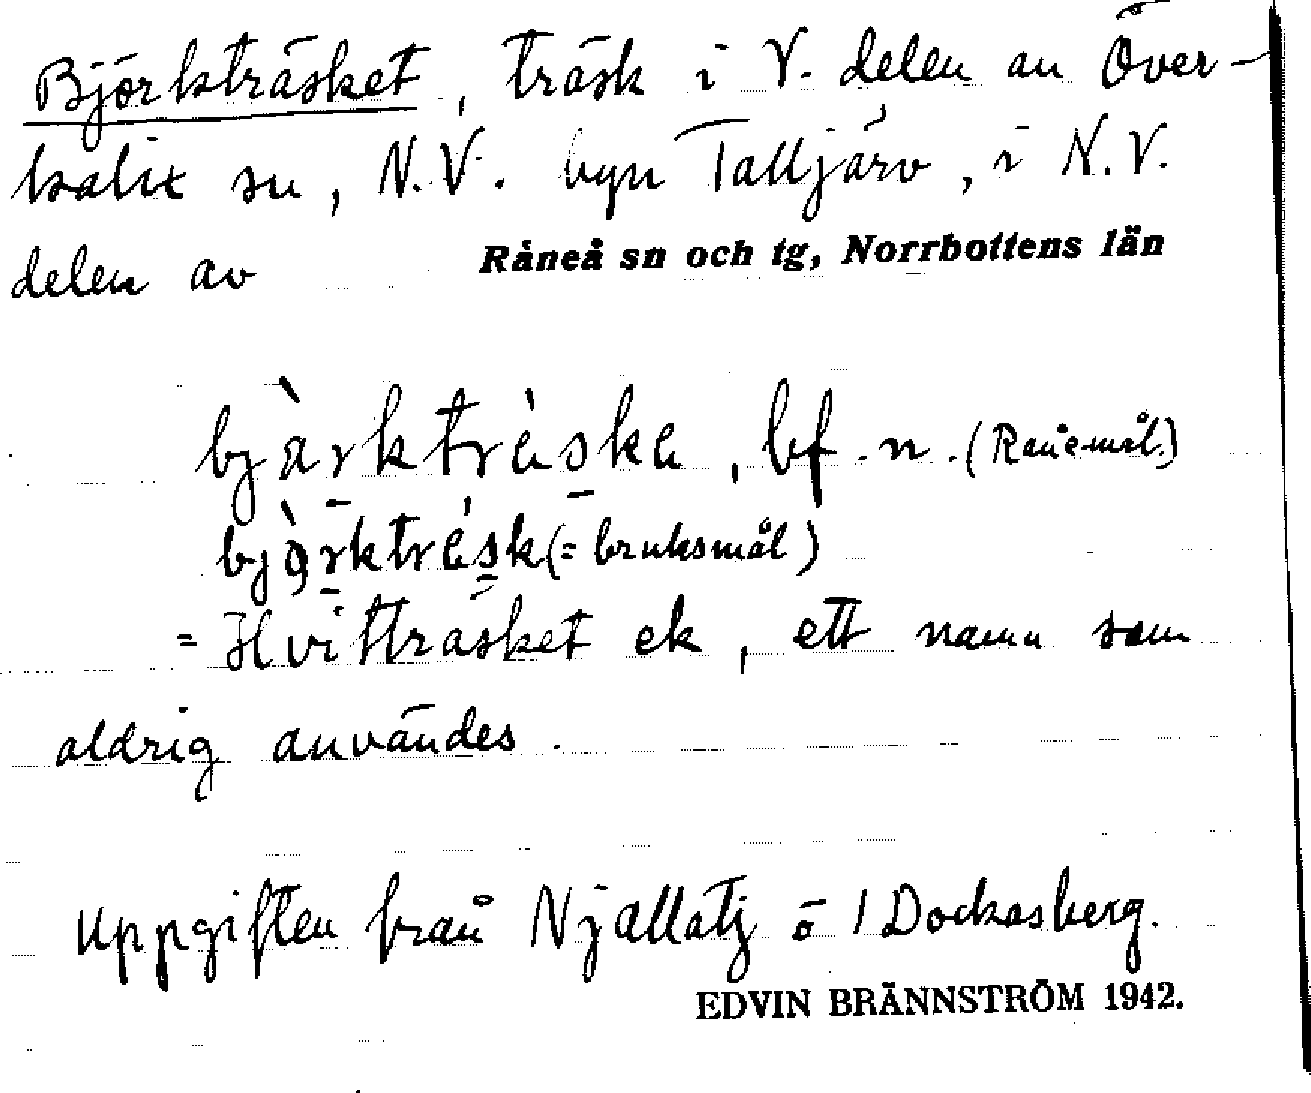 Björkträsket, träsk i V. delen av Över-
kalix sn, N.V. byn Talljärv, i N.V.
delen av Råneå sn och tg, Norrbottens län
bjàrktrèske, bf. n. (Rånemål)
bjàrktrésk (= bruksmål)
= Hvitträsket ek, ett namn som
aldrig användes.
Uppgiften från Njallatj ö / Dockasberg.
EDVIN BRÄNNSTRÖM 1942.